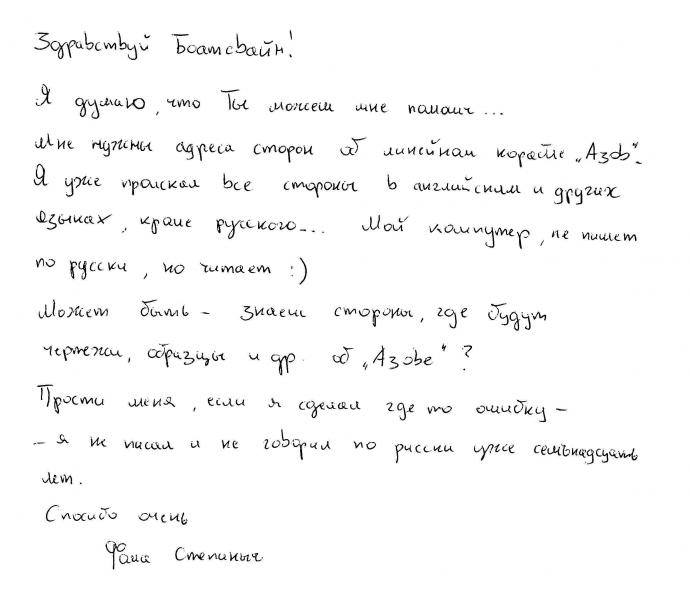 Здравствуй Боатсвайн!
Я думаю, что Ты можеш мне памаич...
Мне нужны адреса сторон об линейнам корабле „Азов".
Я уже праискал все стороны в английским и других
языках, краме русского... Мой кампутер, не пишет
по русски, но читает :)
Может быть – знаеш стороны, где будут
чертежи, образцы и др. об „Азове" ?
Прости меня, если я сделал где то ошибку –
– я ж писал и не говорил по русски уже семьнадцать
лет.
Спосибо очень
Степаныч